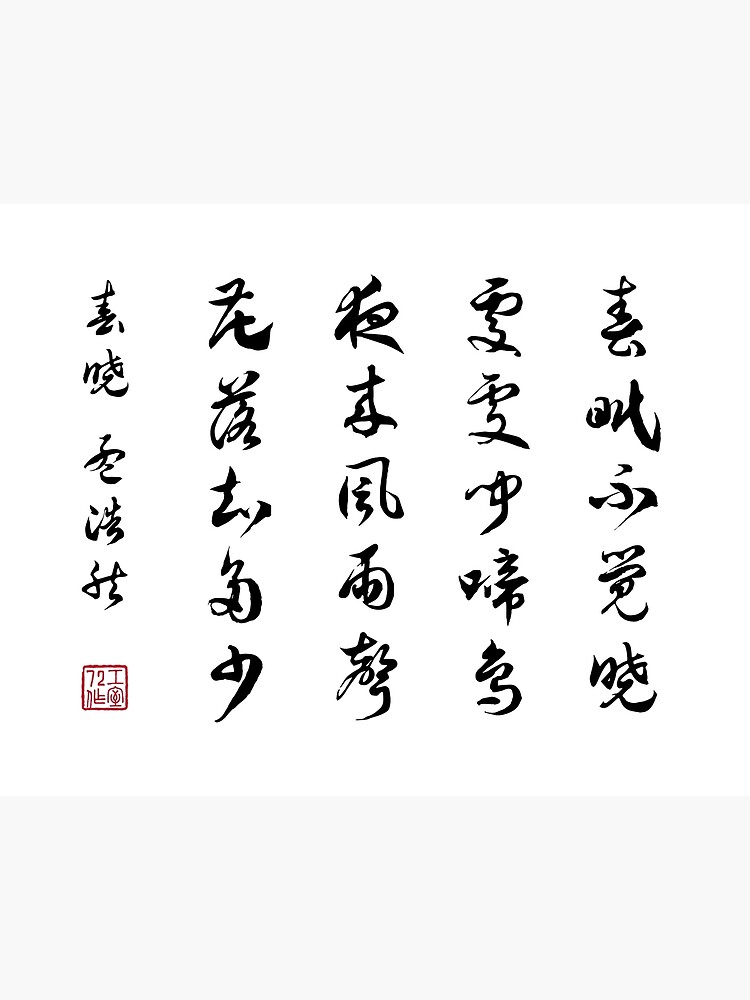 春眠不觉晓
处处闻啼鸟
夜来风雨声
花落知多少
春晓 孟浩然
工室
72作